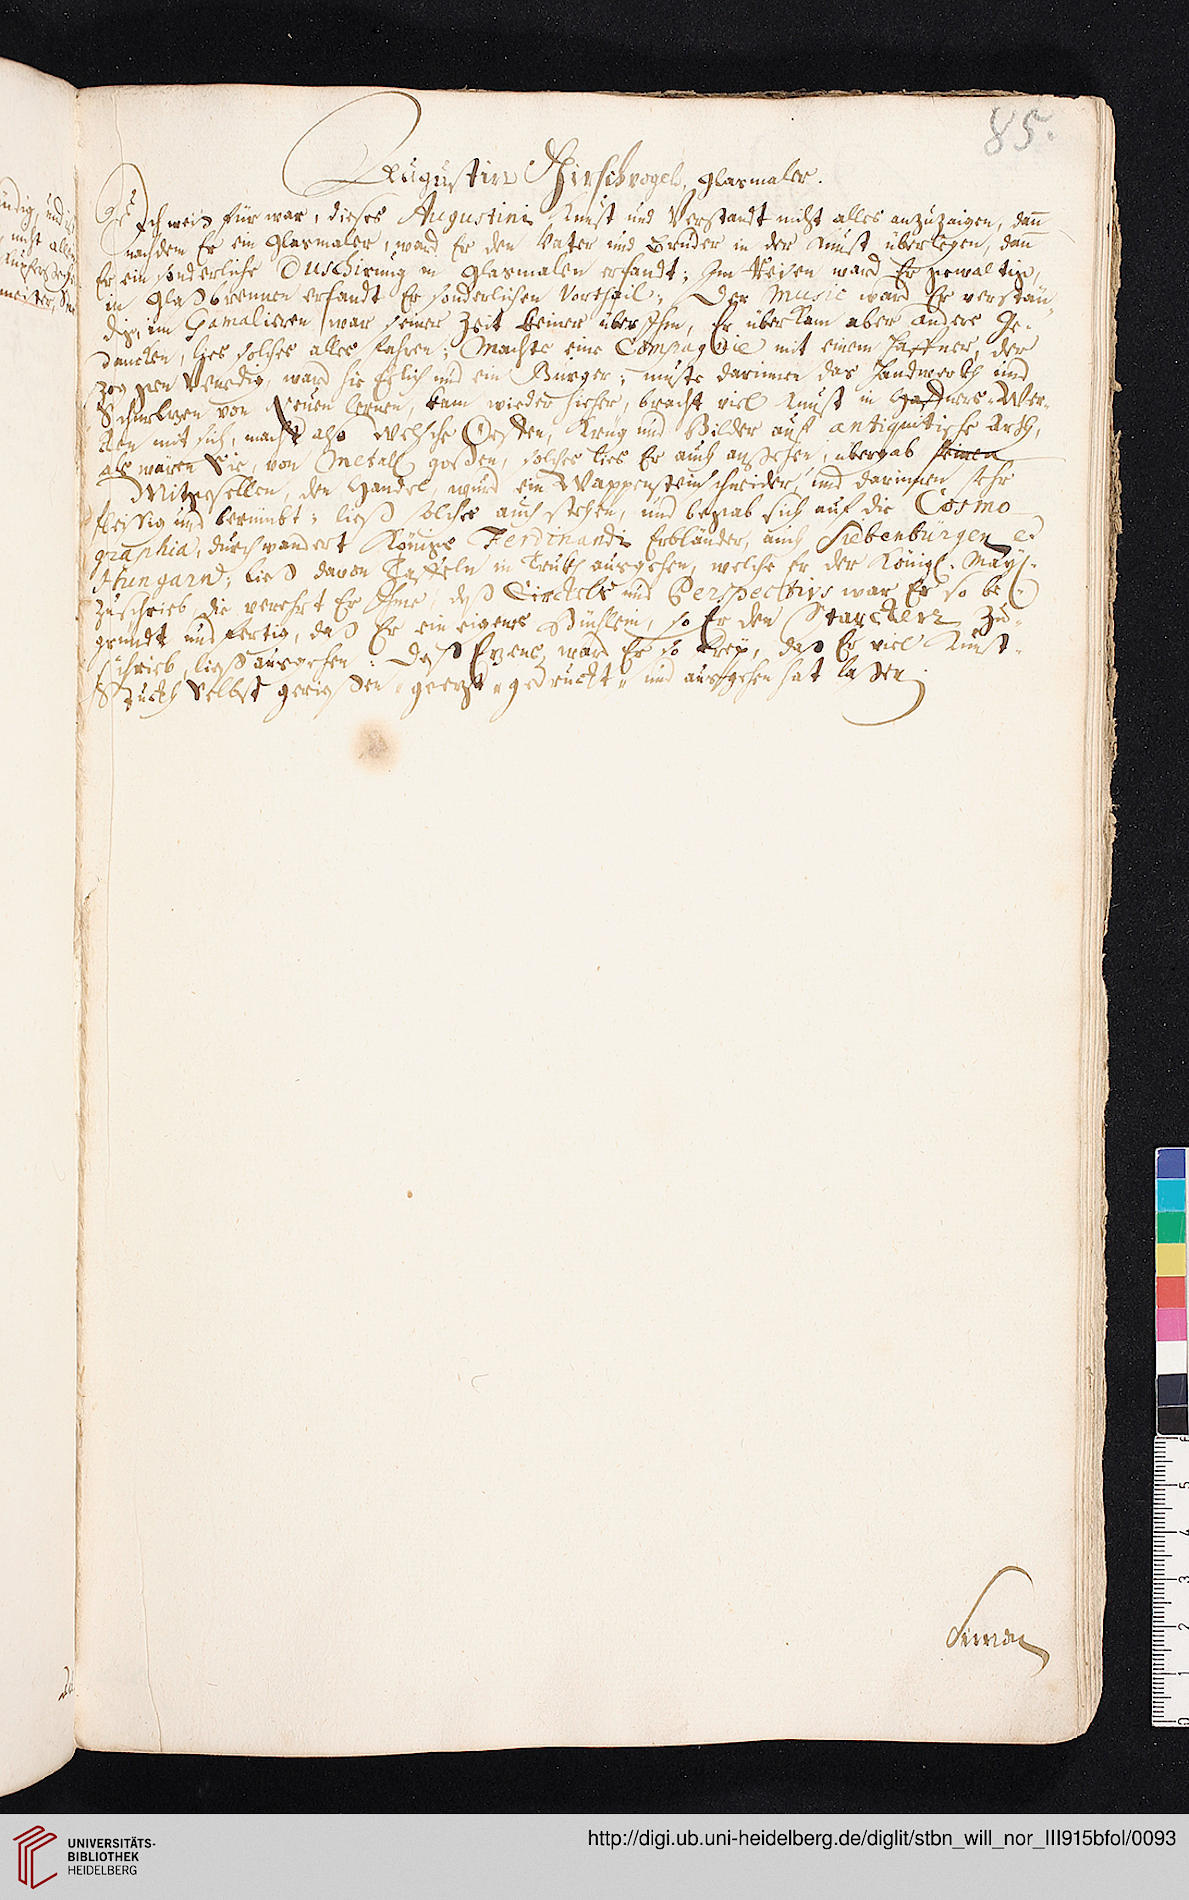 85.
Augustin Hirschvogel, Glasmaler.
Ich weiß für war, dieses Augustini Kunst und Verstandt nicht alles anzuzaigen, dann
nachdem Er ein Glasmaler, ward Er den Vatter und Brüder in der Kunst überlegen, dann
Er ein sonderliche Duschirung in Glasmalen erfandt; Im Reisen ward Er gewaltig,
in Glaßbrennen erfandt Er sonderlichen Vortheil; Der Music ward Er verstän-
dig, im Gamalieren war seiner Zeit keiner über Ihm, Er überkam aber andere Ge-
dancken, lies solches alles fahren; Machte eine Compagnie mit einem Haffner, der
zog gen Venedig, ward hie Ehlich und ein Burger; muste darinnen das Handwerkh und
Schmeltzen von Neuen lernen, kam wieder hieher, bracht viel Kunst in Haffners-Wer-
ken mit sich, macht also Welsche Oeffen, Krug und Bilder auf antiquitische Arth,
als wären Sie, von Metall goßen, solches lies Er auch anstehen, übergab seinen
Mitgesellen, den Handel, wurd ein Wappensteinschneider, und darinnen sehr
fleissig und berümbt; ließ solches auch stehen, und begab sich auf die Cosmo
graphia, durchwandert Königs Ferdinandi Erbländer, auch Siebenbürgen e.
Hungarn; ließ davon Taffeln in Truckh ausgehen, welche er der Königl. Mayt.
zuschrieb, die verehrt Er Ihme, deß Circkels und Perspectivs war Er so be-
gründt und fertig, daß Er ein eigenes Büchlein, so Er den Starcken Zu-
schrieb ließ ausgehen; Deß Ezens, war Er so , das Er viel Kunst-
Stuckh Selbst gerießen, geezt, gedruckt, und ausgehen hat laßen.
Simon
UNIVERSITÄTS-
BIBLIOTHEK
HEIDELBERG
http://digi.ub.uni-heidelberg.de/diglit/stbn_will_nor_III915bfol/0093